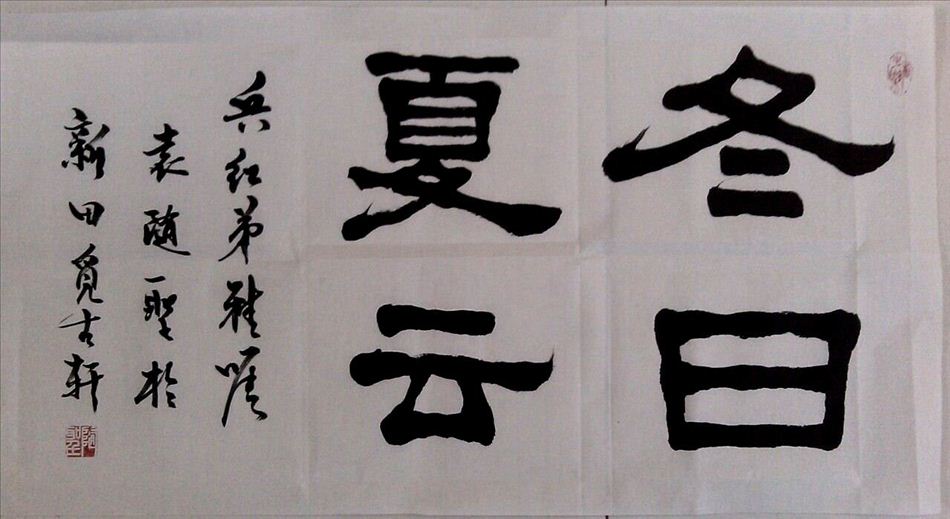 冬日
夏云
兵红弟雅嘱
袁随圣於
新田觅古轩